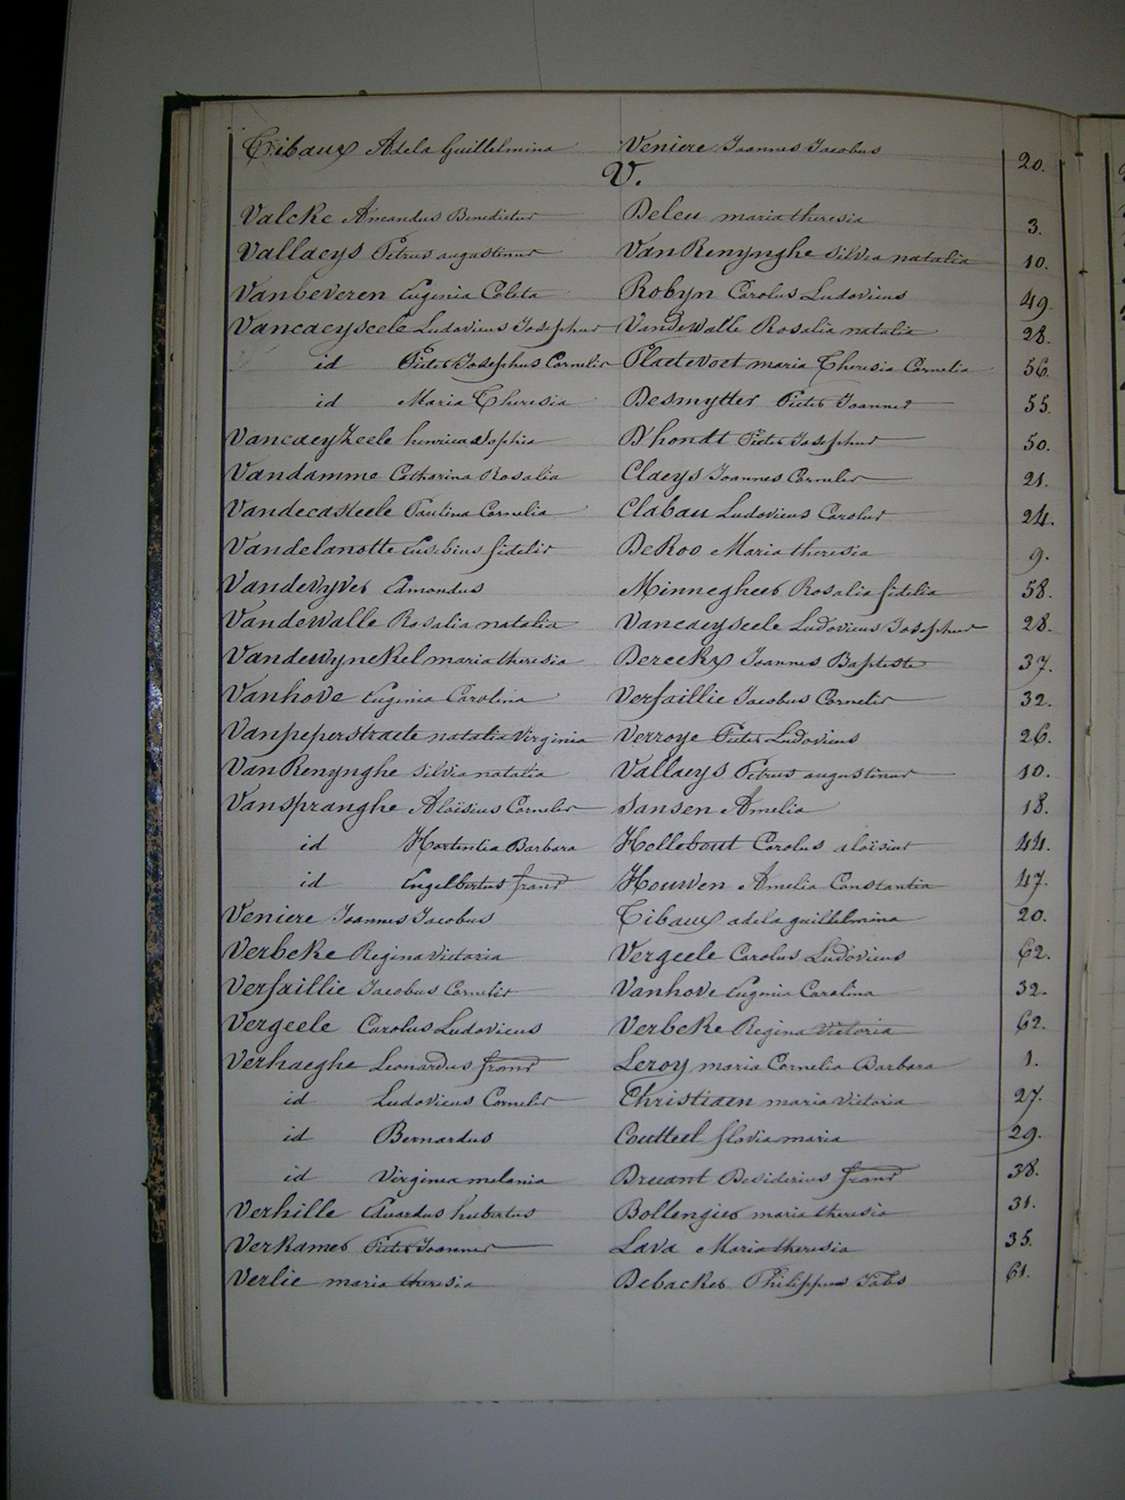 Tibaux Adela Guillelmina Veniere Joannes Jacobus 20.
V.
Valcke Amandus Benedictus Deleu maria theresia 3.
Vallaeys Petrus augustinus Van Renynghe silvia natalia 10.
Vanbeveren Eugenia Coleta Robyn Carolus Ludovicus 49.
Vancaeyseele Ludovicus Josephus Vandewalle Rosalia natalia 28.
id Pieter Josephus Cornelis Plaetevoet maria Theresia Cornelia 56.
id Maria Theresia Desmytter Pieter Joannes 55.
Vancaeyzeele henrica Sophia D'hondt Pieter Josephus 50.
Vandamme Catharina Rosalia Claeys Joannes Cornelis 21.
Vandecasteele Paulina Cornelia Clabau Ludovicus Carolus 24.
Vandelanotte Eusebius fidelis DeRoo Maria theresia 9.
Vandevyver Edmondus Minnegheer Rosalia fidelia 58.
Vandewalle Rosalia natalia Vancaeyseele Ludovicus Josephus 28.
Vandewynckel maria theresia Dereckx Joannes Baptiste 37.
Vanhove Eugenia Carolina Verfaillie Jacobus Cornelis 32.
Vanpeperstraete natalia Virginia Verroye Pieter Ludovicus 26.
Van Renynghe silvia natalia Vallaeys Petrus augustinus 10.
Vanspranghe Aloïsius Cornelis Jansen Amelia 18.
id Hortentia Barbara Hollebout Carolus aloïsius 44.
id Engelbertus frans Houwen Amelia Constantia 47.
Veniere Joannes Jacobus Tibaux adela guillelmina 20.
Verbeke Regina Victoria Vergeele Carolus Ludovicus 62.
Verfaillie Jacobus Cornelis Vanhove Eugenia Carolina 32.
Vergeele Carolus Ludovicus Verbeke Regina Victoria 62.
Verhaeghe Leonardus frans Leroy maria Cornelia Barbara 1.
id Ludovicus Cornelis Christiaen maria Victoria 27.
id Bernardus Coutteel flavia maria 29.
id Virginia melania Druant Desiderius frans 38.
Verhille Eduardus hubertus Bollengier maria theresia 31.
Verkamer Pieter Joannes Lava Maria theresia 35.
Verlie maria theresia Debacker Philippus 61.